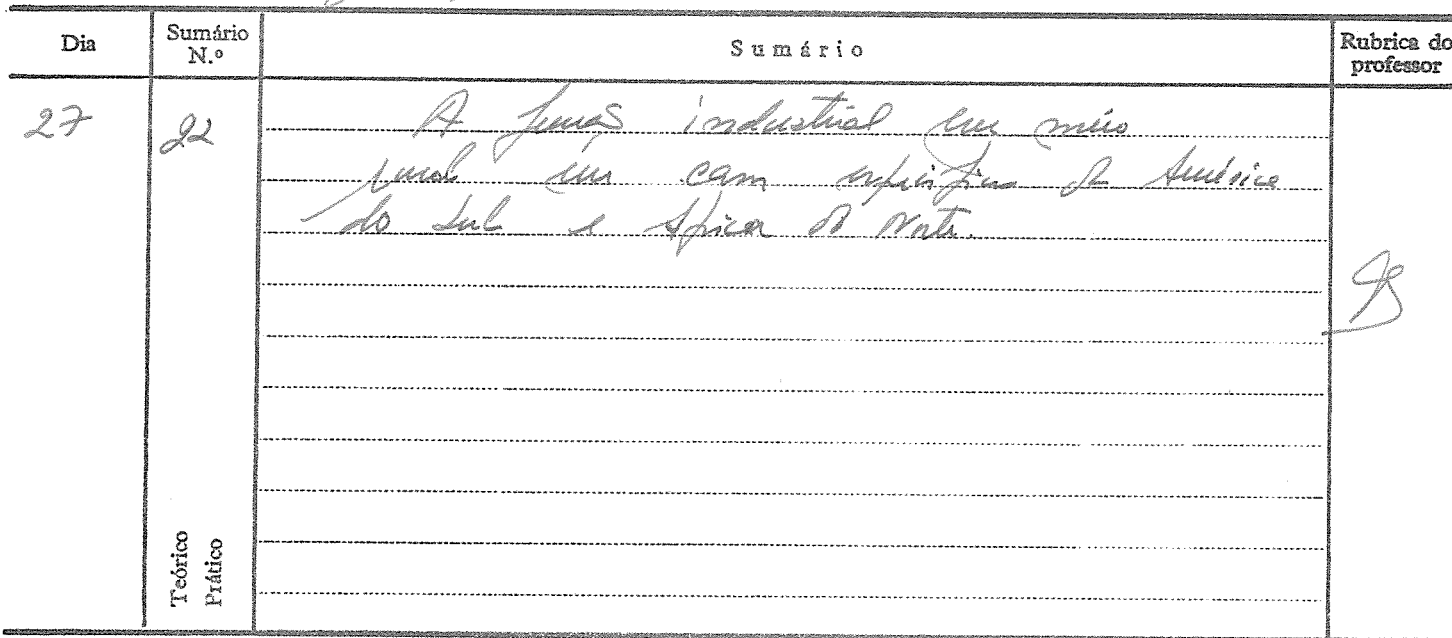 Dia
Sumário N.º
Sumário
Rubrica do professor
27
22
A função industrial em meio
rural em casos específicos da América
do Sul e África do Norte.
Teórico
Prático